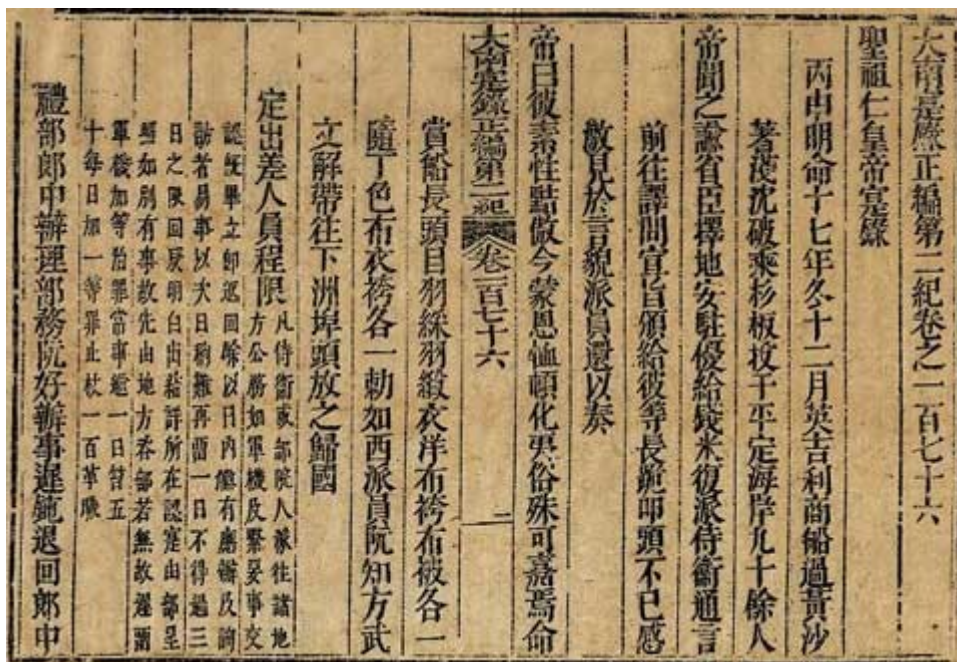 大南寔錄正編第二紀卷之一百七十六
聖祖仁皇帝寔錄
丙申明命十七年冬十二月英吉利商船過黃沙
著淺沈破乘杉板投于平定海岸九十餘人
帝聞之諭省臣擇地安駐優給錢米復派侍衛通言
前往譯問宣旨頒給彼等長跪叩頭不已感
激見於言貌派員還以奏
帝曰彼素性黠傲今蒙恩恤頓化夷俗殊可嘉焉命
大南寔錄正編第二紀 卷一百七十六 一
賞船長頭目羽綵羽緞衣洋布袴布被各一
隨丁色布衣袴各一勅如西派員阮知方武
文解帶往下洲埠頭放之歸國
定出差人員程限 凡侍衛或部院人派往諸地
方公務如軍機及緊要事交
認旣畢立卽返回餘以日內繼有應辦及詢
訪者易事以六日稍難再留一日不得過三
日之限回辰明白出結詳所在認寔由部呈
照如別有事故先由地方咨部若無故遲留
軍機加等治罪當事逾一日笞五
十每日加一等罪止杖一百革職
禮部郎中辦理部務阮好辦事遲範退回郎中